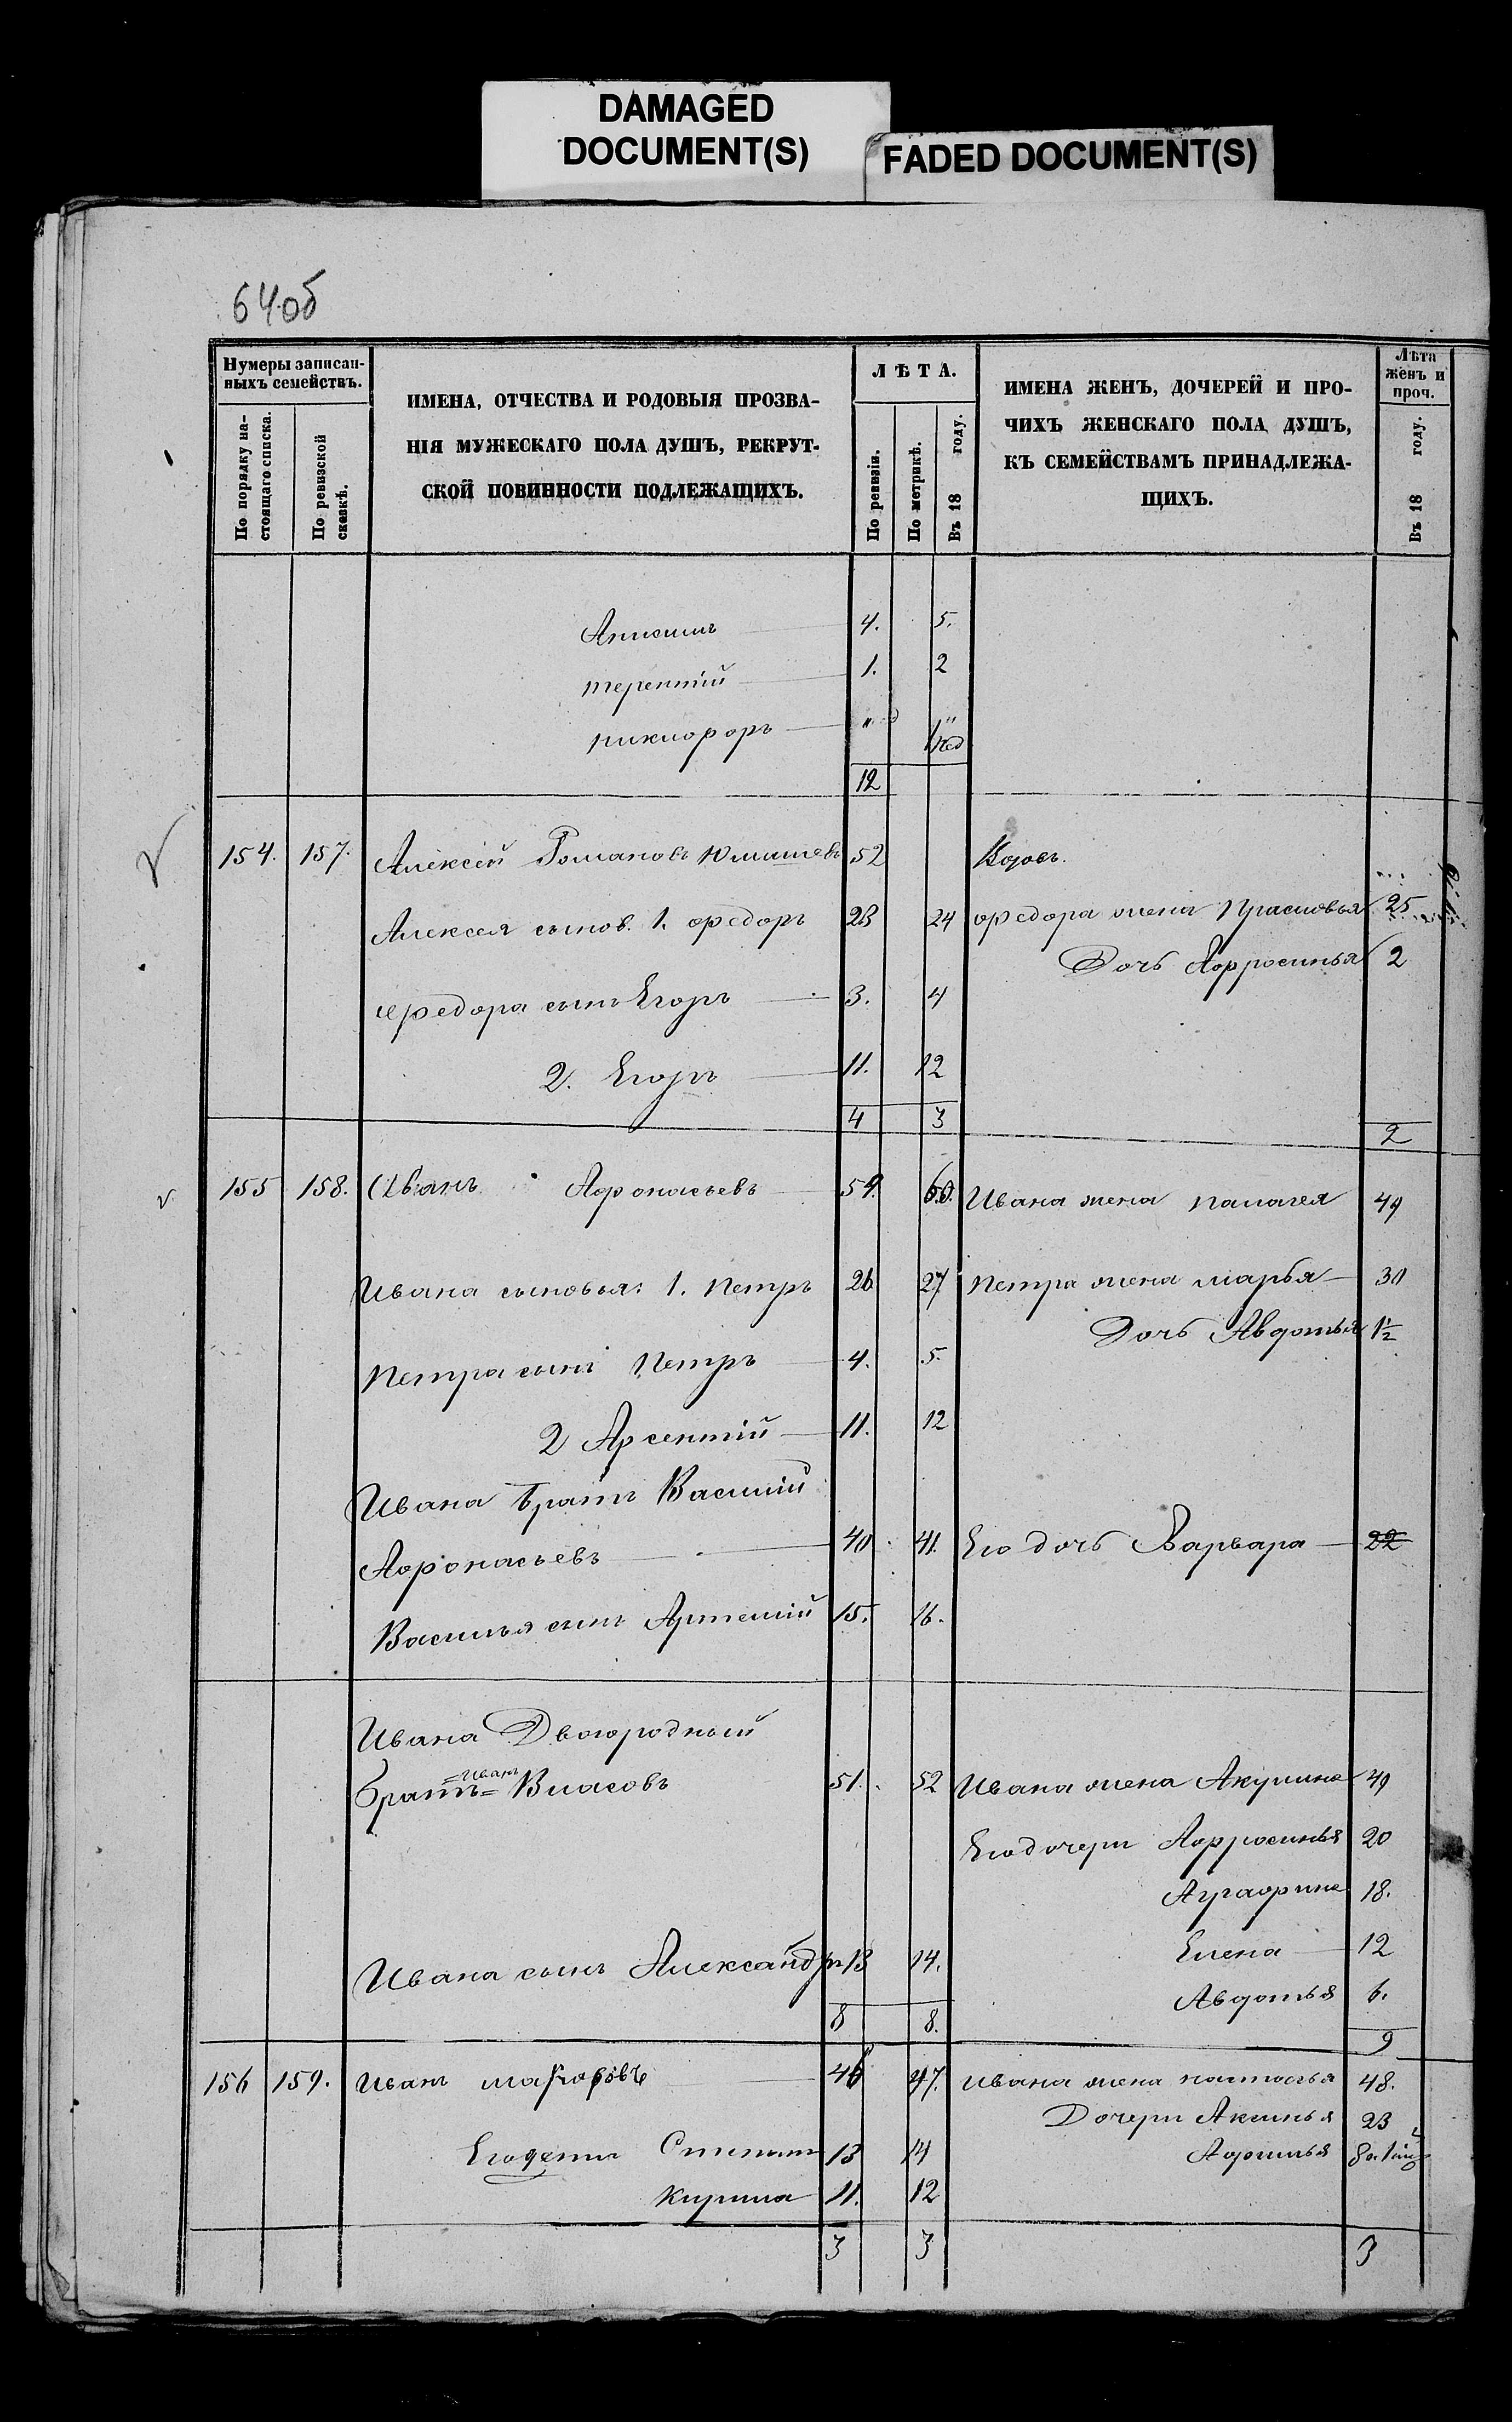 DAMAGED
DOCUMENT(S)
FADED DOCUMENT(S)
64об
Нумеры записан-
ныхъ семействъ.
По порядку на-
стоящаго списка.
По ревизской
сказкѣ.
ИМЕНА, ОТЧЕСТВА И РОДОВЫЯ ПРОЗВА-
НІЯ МУЖЕСКАГО ПОЛА ДУШЪ, РЕКРУТ-
СКОЙ ПОВИННОСТИ ПОДЛЕЖАЩИХЪ.
ЛѢТА.
По ревизіи.
По метрикѣ.
Въ 18 году.
ИМЕНА ЖЕНЪ, ДОЧЕРЕЙ И ПРО-
ЧИХЪ ЖЕНСКАГО ПОЛА ДУШЪ,
КЪ СЕМЕЙСТВАМЪ ПРИНАДЛЕЖА-
ЩИХЪ.
Лѣта
женъ и
проч.
Въ 18 году.
Анисимъ 4. 5.
терентій 1. 2
никифоръ " "
12
154. 157. Алексей Романовъ 52 Вдовъ.
Алексея сынов. 1. федоръ 23 24 федора жена Прасковья 25
Дочь Афросинья 2
федора сынъ Егоръ 3. 4
2. Егоръ 11. 12
4 3 2
155 158. Иванъ Афонасьевъ 59. 60. Ивана жена палагея 49
Ивана сыновья: 1. Петръ 26 27 Петра жена марья 30
Дочь Авдотья 1½
Петра сынъ Петръ 4. 5.
2 Арсентій 11. 12
Ивана братъ Василій
Афонасьевъ 40 41. Его дочь Варвара 22
Василья сынъ Артемій 15. 16.
Ивана Двоюродный
братъ =Иванъ= Власовъ 51. 52 Ивана жена Акулина 49
Его дочери Афросинья 20
Аграфина 18.
Елена 12
Ивана сынъ Александръ 13 14.
Авдотья 6.
8 8. 9
156 159. Иванъ 46 47. Ивана жена настасья 48.
Дочери Аксинья 23
Его дети Степанъ 13 14
Афимья
Кирила 11. 12
3 3 3